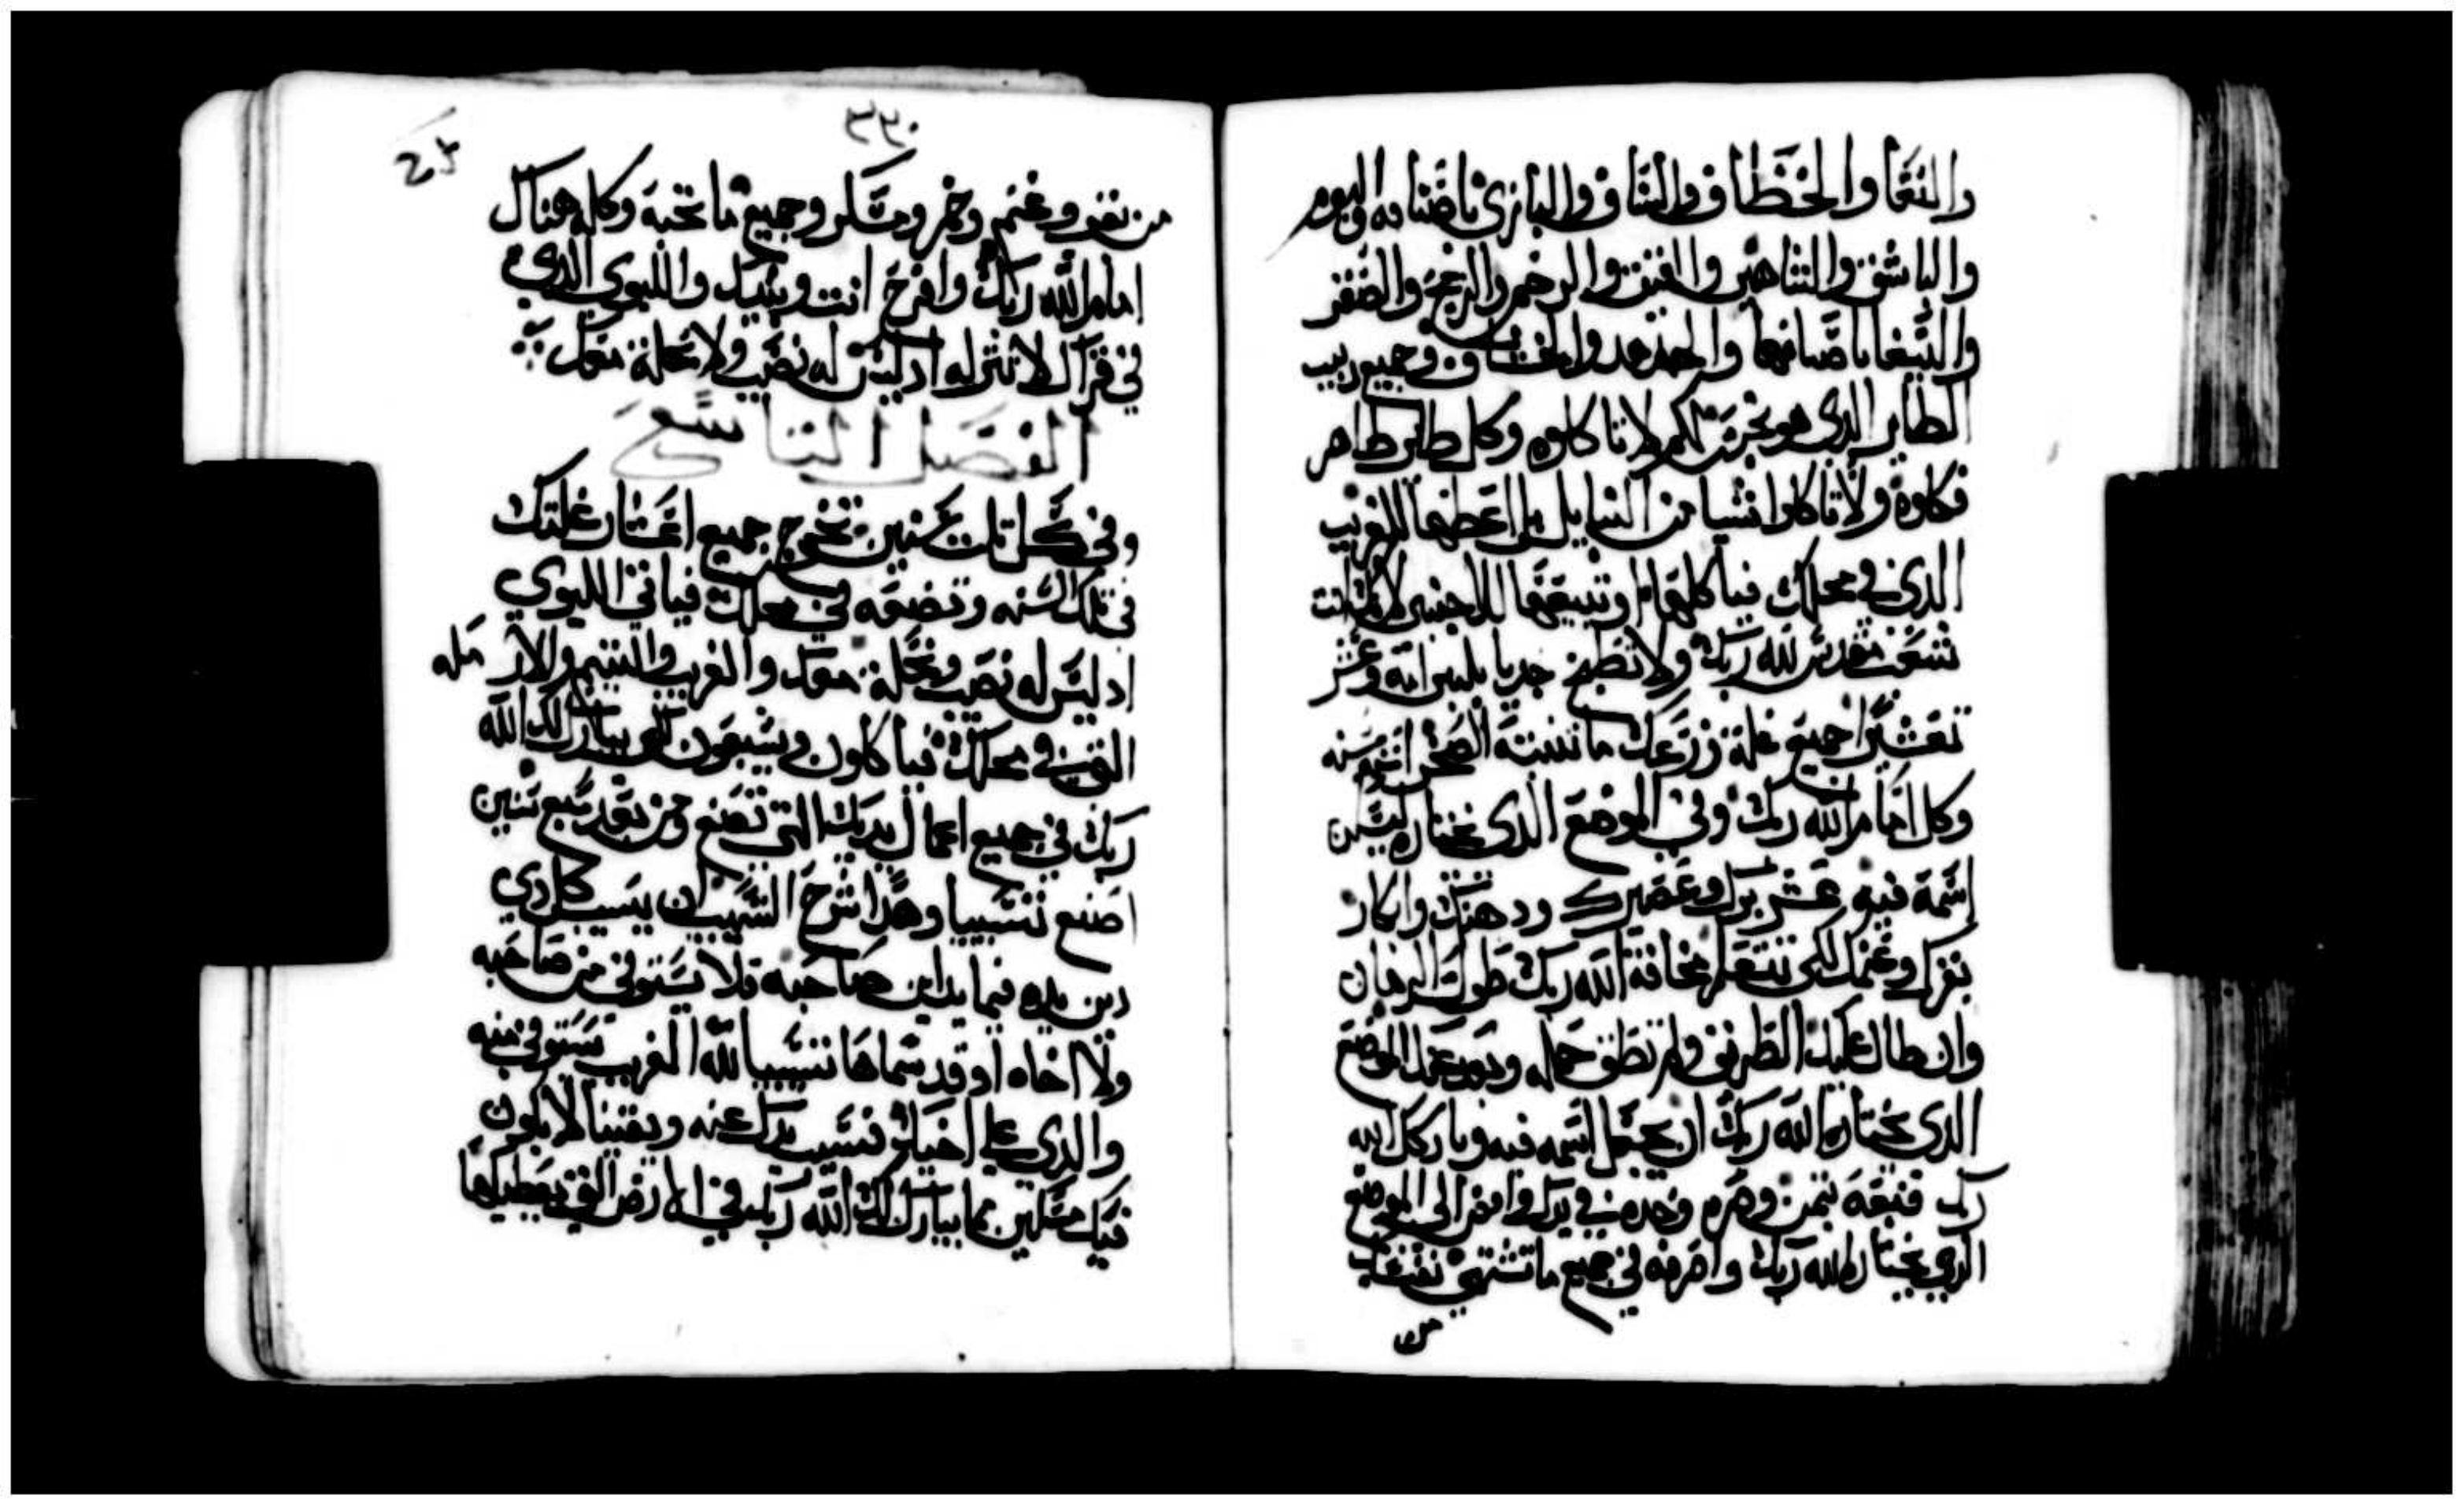 والنعام والخطاف والساف والبازي باصنافه والبوم
والباشق والشاهين والقيق والرخم والزمج والصقر
والببغا باصنافها والهدهد والخشاف وجميع دبيب
الطاير الذي هو نجس لكم لا تاكلوه وكل طاير طاهر
فكلوه ولا تاكلوا شيا من النبايل بل اعطها للغريب
الذي في محلك فياكلها او تبيعها للاجنبي لانك انت
شعب مقدس لله ربك ولا تطبخ جديا بلبن امه وعشر
تعشيرا جميع غلة زرعك ما تنبته الصحرا سنه سنه
وكل امام الله ربك وفي الموضع الذي يختاره ليسكن
اسمه فيه عشر برك وعصيرك ودهنك وابكار
بقرك وغنمك لكي تتعلم مخافة الله ربك طول الزمان
وان طال عليك الطريق ولم تطق حمله وبعد عنك الموضع
الذي يختاره الله ربك ان يجعل اسمه فيه وبارك لك الله
ربك فبعه بثمن وصره وخده في يدك وامض الى الموضع
الذي يختاره الله ربك واصرفه في جميع ما تشتهي نفسك
من
٣٣٠
من بقر وغنم وخمر ومسكر وجميع ما تحبه وكله هناك
امام الله ربك وافرح انت وبيتك والليوي الذي
في قراك لا تتركه اذ ليس له نصيب ولا نحلة معك
الفصل التاسع
وفي كل تلت سنين تخرج جميع اعشار غلتك
في تلك السنه وتضعه في محلك فياتي الليوي
اذ ليس له نصيب ونحلة معك والغريب واليتيم والارمله
التي في محلك فياكلون ويشبعون لكي يبارك لك الله
ربك في جميع اعمال يديك التي تصنع ومن بعد سبع سنين
اصنع تسييبا وهذا شرح التسييب ان يسيب كل ذي
دين يده فيما يداين صاحبه فلا يستوفي من صاحبه
ولا اخاه او قد سماها تسييبا لله الغريب تستوفي منه
والذي على اخيك فتسيب يدك عنه ويقينا لا يكون
فيك مسكين مما يبارك لك الله ربك في الارض التي يعطيكها